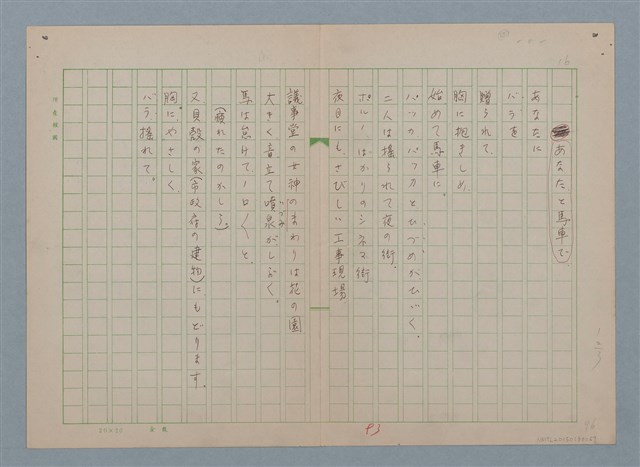 16
あなたと馬車で
あなたに
バラを
贈られて
胸に抱きしめ
始めて馬車に。
パッカパッカとひづめがひびく
二人は揺られて夜の街。
ポルノばかりのシネマ街
夜目にもさびしい工事現場
議事堂の女神のまわりは花の園
大きく音立て噴泉がしぶく。
馬は怠けてノロノロと。
(疲れたのかしら)
又貝殻の家(市政府の建物)にもどります。
胸にやさしく
バラ揺れて。
P3
20×20